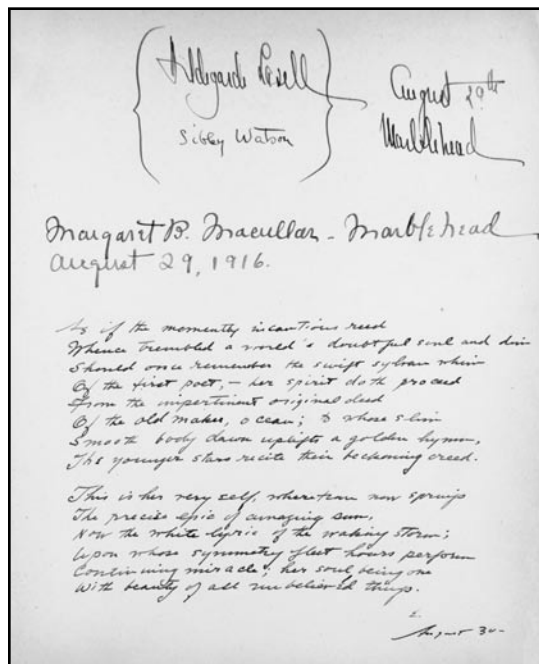 Hildegarde Lasell
Sibley Watson
August 29th
Marblehead
Margaret B. Macullar - Marblehead
August 29, 1916.
As if the momently incautious reed
Whence trembled a world's doubtful soul and dim
Should once remember the swift sylvan whim
Of the first poet, — her spirit doth proceed
From the impertinent original deed
Of the old maker, ocean; to whose slim
Smooth body dawn uplifts a golden hymn,
The younger stars recite their beckoning creed.
This is her very self, wherefrom now springs
The precise epic of amazing sun,
Now the white lyric of the waking storm;
Upon whose symmetry fleet hours perform
Continuing miracle; her soul being one
With beauty of all unbelieved things.
August 30-